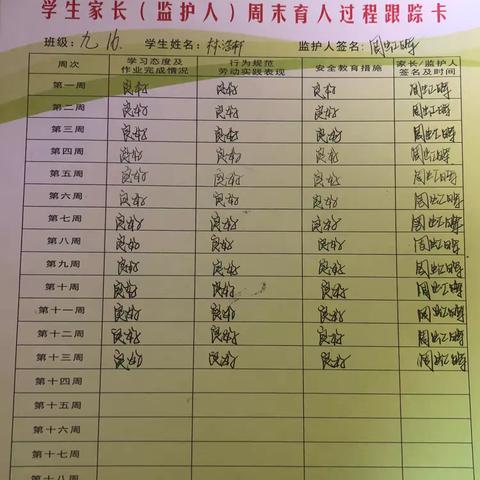 学生家长（监护人）周末育人过程跟踪卡
班级：九16. 学生姓名： 监护人签名：周虹晖
周次 学习态度及作业完成情况 行为规范劳动实践表现 安全教育措施 家长/监护人签名及时间
第一周 良好 良好 良好 周虹晖
第二周 良好 良好 良好 周虹晖
第三周 良好 良好 良好 周虹晖
第四周 良好 良好 良好 周虹晖
第五周 良好 良好 良好 周虹晖
第六周 良好 良好 良好 周虹晖
第七周 良好 良好 良好 周虹晖
第八周 良好 良好 良好 周虹晖
第九周 良好 良好 良好 周虹晖
第十周 良好 良好 良好 周虹晖
第十一周 良好 良好 良好 周虹晖
第十二周 良好 良好 良好 周虹晖
第十三周 良好 良好 良好 周虹晖
第十四周
第十五周
第十六周
第十七周
第十八周